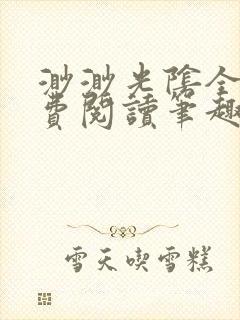 渺渺光陰全
費閱讀筆趣
雪天喫雪糕